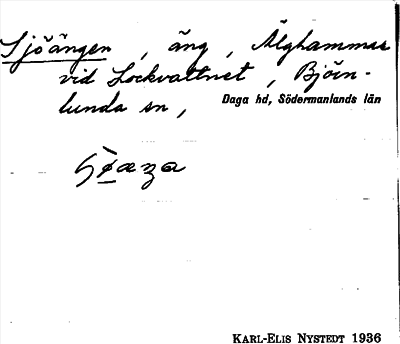 Sjöängen, äng, Älghammar
vid Lockvattnet, Björn-
lunda sn, Daga hd, Södermanlands län
KARL-ELIS NYSTEDT 1936